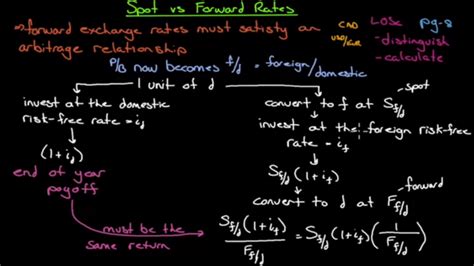 Spot vs Forward Rates
⇒ forward exchange rates must satisfy an
arbitrage relationship
CAD
USD/EUR
LOS c
pg-8
- distinguish
- calculate
P/B now becomes f/d = foreign/domestic
1 unit of d
invest at the domestic
risk-free rate = i_d
(1+i_d)
end of year
payoff
convert to f at S_f/d
spot
invest at the foreign risk-free
rate = i_f
S_f/d (1+i_f)
convert to d at F_f/d
forward
must be the
same return
S_f/d (1+i_f) / F_f/d = S_f/d (1+i_f) (1/F_f/d)